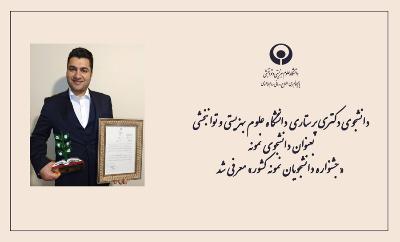 دانشگاه علوم بهزیستی و توانبخشی
دانشجوی دکتری پرستاری دانشگاه علوم بهزیستی و توانبخشی
بعنوان دانشجوی نمونه
«جشنواره دانشجویان نمونه کشور» معرفی شد